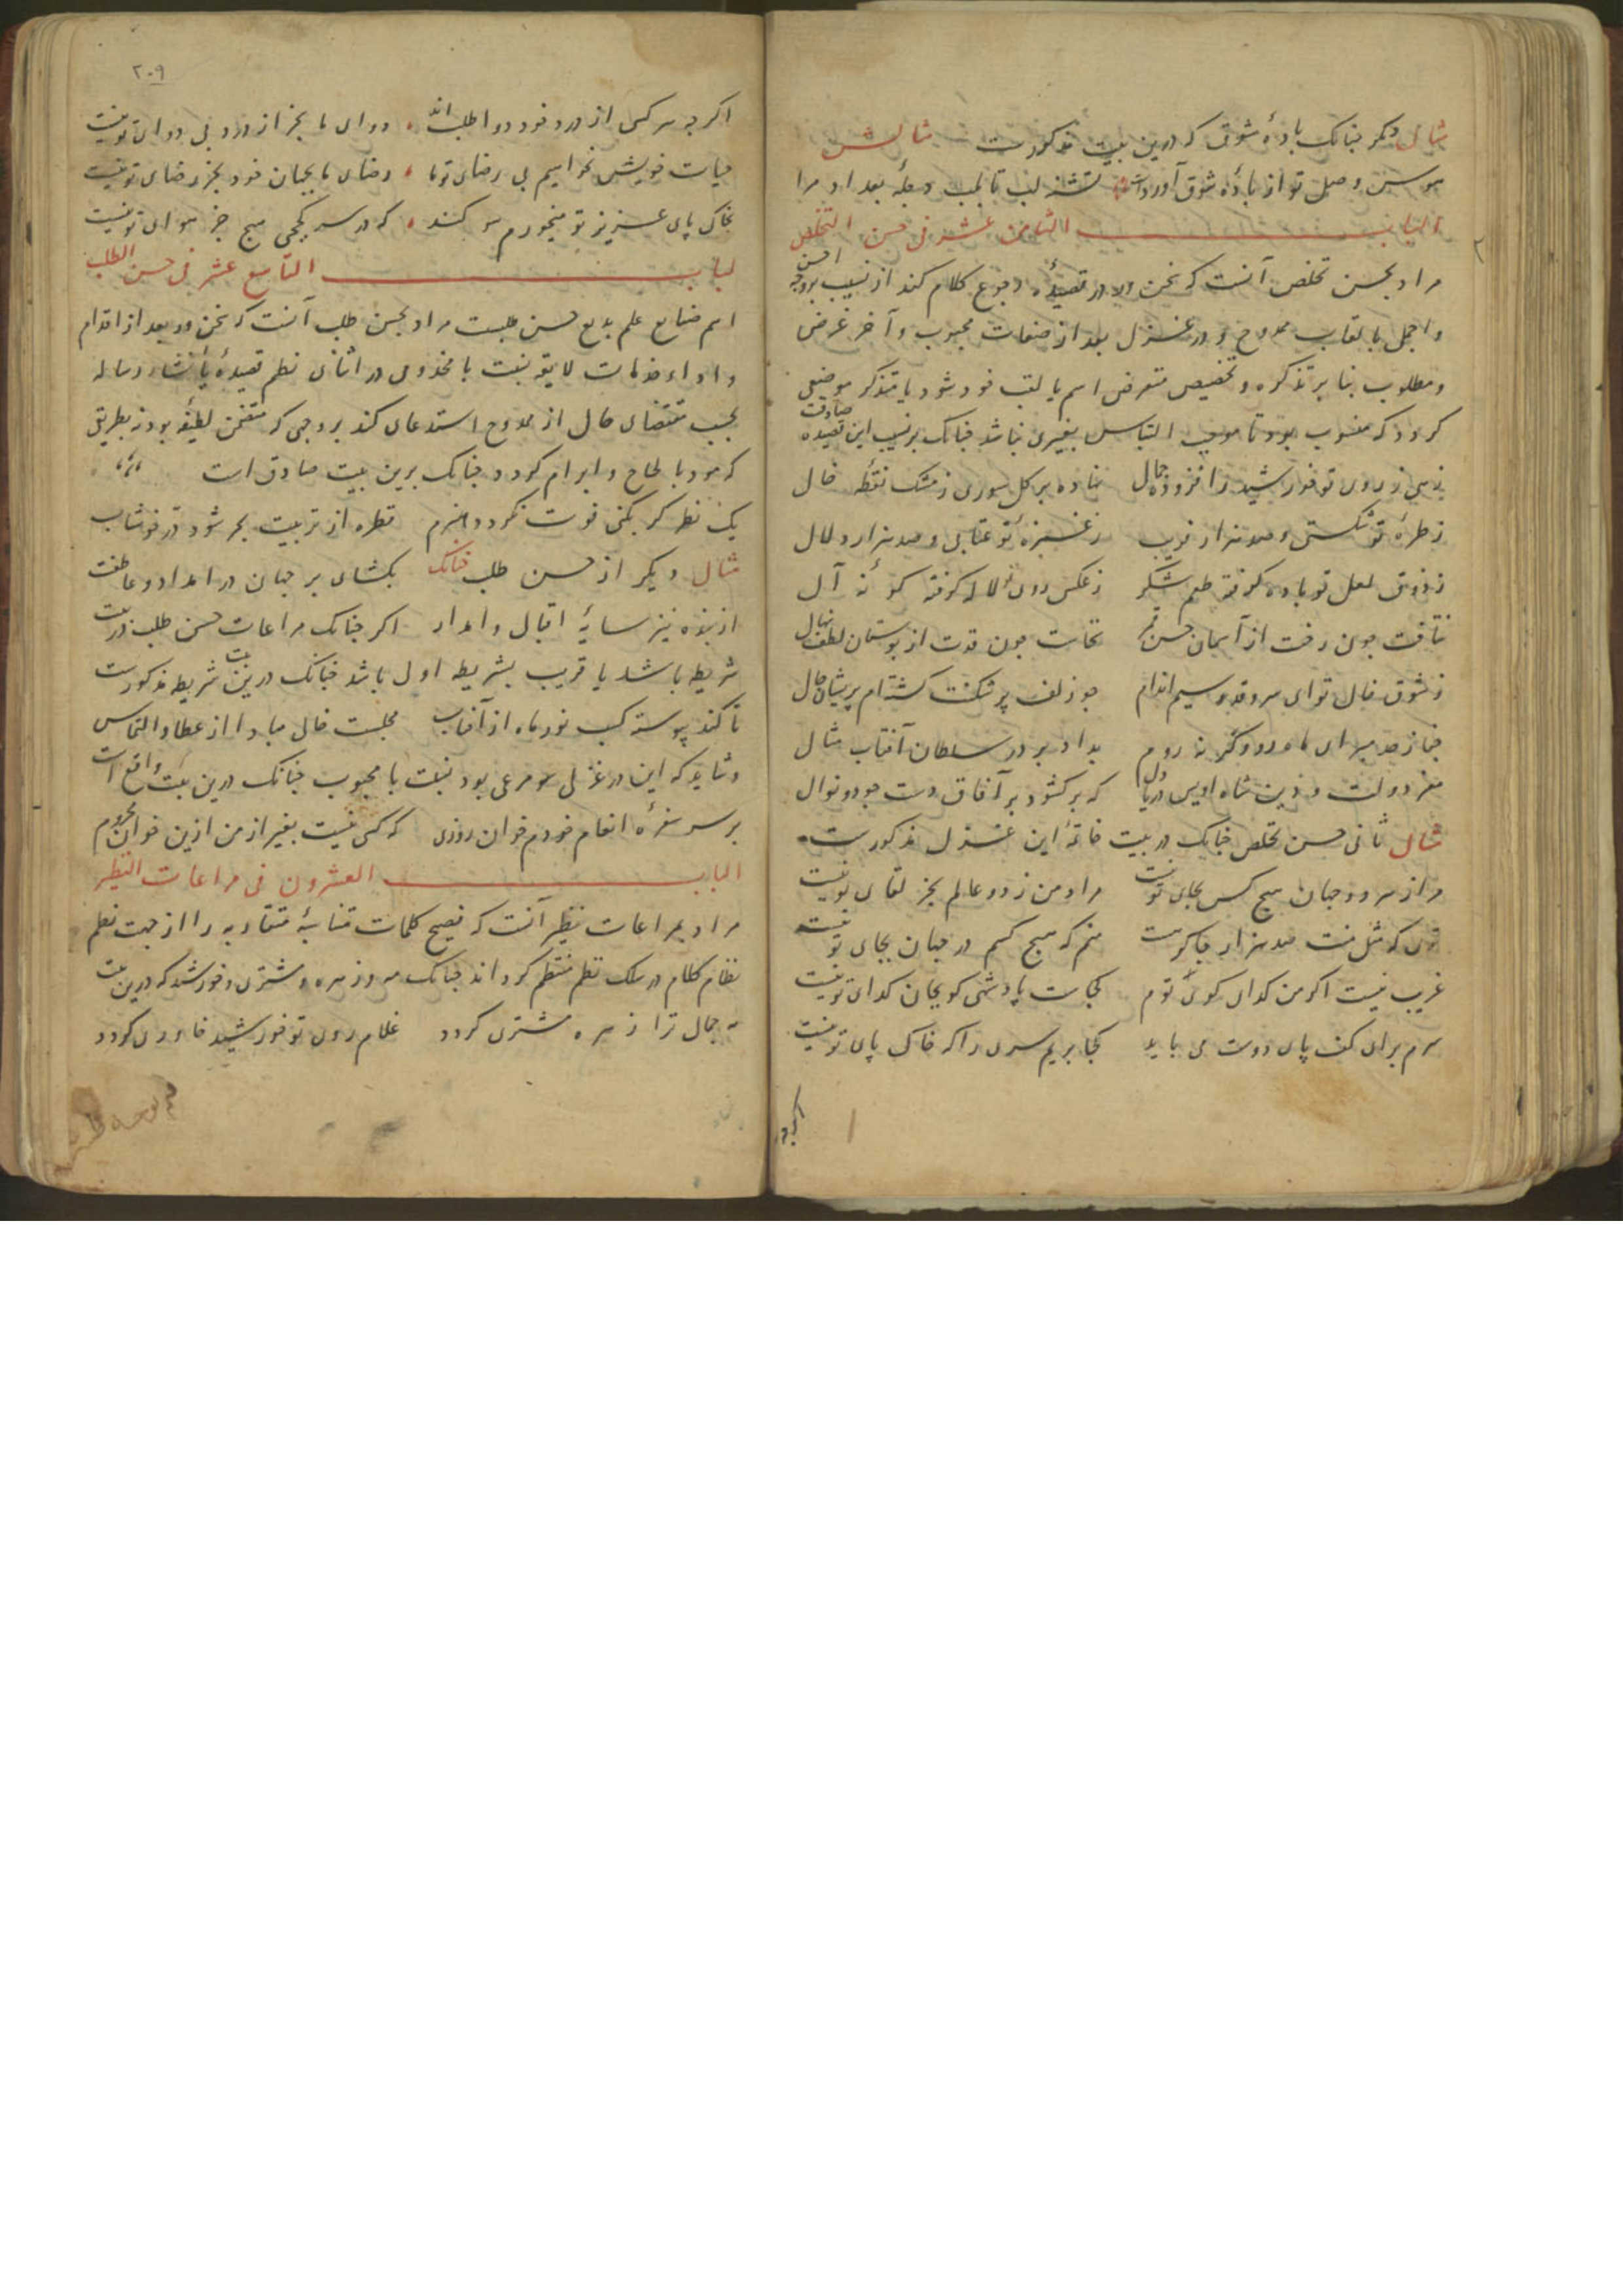 مثال دیکر جنانک بادهٔ شوق که درین بیت مذکورست مثالش
هوس وصل تو از بادهٔ شوق آوردست تشنه لب تا بلب دجلهٔ بغداد مرا
الباب الثامن عشر فی حسن التخلص
مراد بحسن تخلص آنست که سخن ور در قصیده رجوع کلام کند از نسیب بوجه احسن
و اجمل با لقاب ممدوح و در غزل بعد از صفات محبوب و آخر غرض
و مطلوب بنا بر تذکره و تخصیص متعرض اسم یا لقب خود شود یا متذکر موضعی
کردد که منسوب بود تا موجب التباس بغیری نباشد جنانک بر نسیب این قصیده صادقت
زهی ز روی تو خورشید را فزوده جمال نهاده بر کل سوری ز مشک نقطه خال
ز طرهٔ تو شکستی و صد هزار فریب ز غمزهٔ تو عتابی و صد هزار دلال
ز ذوق لعل تو باده کرفته طعم شکر ز عکس روی تو لاله کرفته کونهٔ آل
نتافت جون رخت از آسمان حسن نخاست جون قدت از بوستان لطف نهال
ز شوق خال تو ای سروقد و سیم اندام جو زلف پر شکنت کشته‌ام پریشان حال
بر در سلطان آفتاب مثال
معز دولت و دین شاه اویس دریا دل که بر کشود بر آفاق دست جود و نوال
مثال ثانی حسن تخلص جنانک در بیت خاتمهٔ این غزل مذکورست
مرا ز هر دو جهان هیج کس بجای تو نیست مراد من ز دو عالم بجز لقای تو نیست
توی که مثل منت صد هزار جاکر هست منم که هیج کسم در جهان بجای تو نیست
غریب نیست اکر من کدای کوی توم کجاست پادشهی کو بجان کدای تو نیست
سرم برای کف پای دوست می باید کجا بریم سری را که خاک پای تو نیست
اکرچه
۲۰۹
اکرچه هر کس از درد خود دوا طلبند دوای ما بجز از درد بی دوای تو نیست
حیات خویش نخواهیم بی رضای تو ما رضای ما بجهان خود بجز رضای تو نیست
بخاک پای عزیز تو میخورم سوکند که در سر کججی هیج جز هوای تو نیست
الباب التاسع عشر فی حسن الطلب
اهم صنایع علم بدیع حسن طلبست مراد بحسن طلب آنست که سخن ور بعد از اقدام
و اداء خدمات لایقه نسبت با مخدومی در اثنای نظم قصیدهٔ یا انشاء رساله
بحسب مقتضای حال از ممدوح استدعای کند بروجهی که متضمن لطیفه بود نه بطریق
که مودی با لحاح و ابرام کردد جنانک برین بیت صادق است
یک نظر کر بکنی فوت نکردد هنرم قطره از تربیت بحر شود در خوشاب
مثال دیکر از حسن طلب جنانک بکشای بر جهان در امداد و عاطفت
از بنده نیز سایهٔ اقبال وامدار اکر جنانک مراعات حسن طلب در بیت
شریطه باشد یا قریب بشریطه اولی باشد جنانک درین بیت شریطه مذکورست
تا کند پیوسته کسب نور ماه از آفتاب مجلست خالی مبادا از عطا و التماس
و شاید که این در غزلی هم مرعی بود نسبت با محبوب جنانک درین بیت واقع است
بر سر سفرهٔ انعام خودم خوان روزی که کسی نیست بغیر از من ازین خوان محروم
الباب العشرون فی مراعات النظیر
مراد بمراعات نظیر آنست که فصیح کلمات متشابهٔ متقاربه را از جهت نظم
نظام کلام در سلک نظم منتظم کرداند جنانک مه و زهره و مشتری و خورشید که درین بیت
مه جمال ترا زهره مشتری کردد غلام روی تو خورشید خاوری کردد